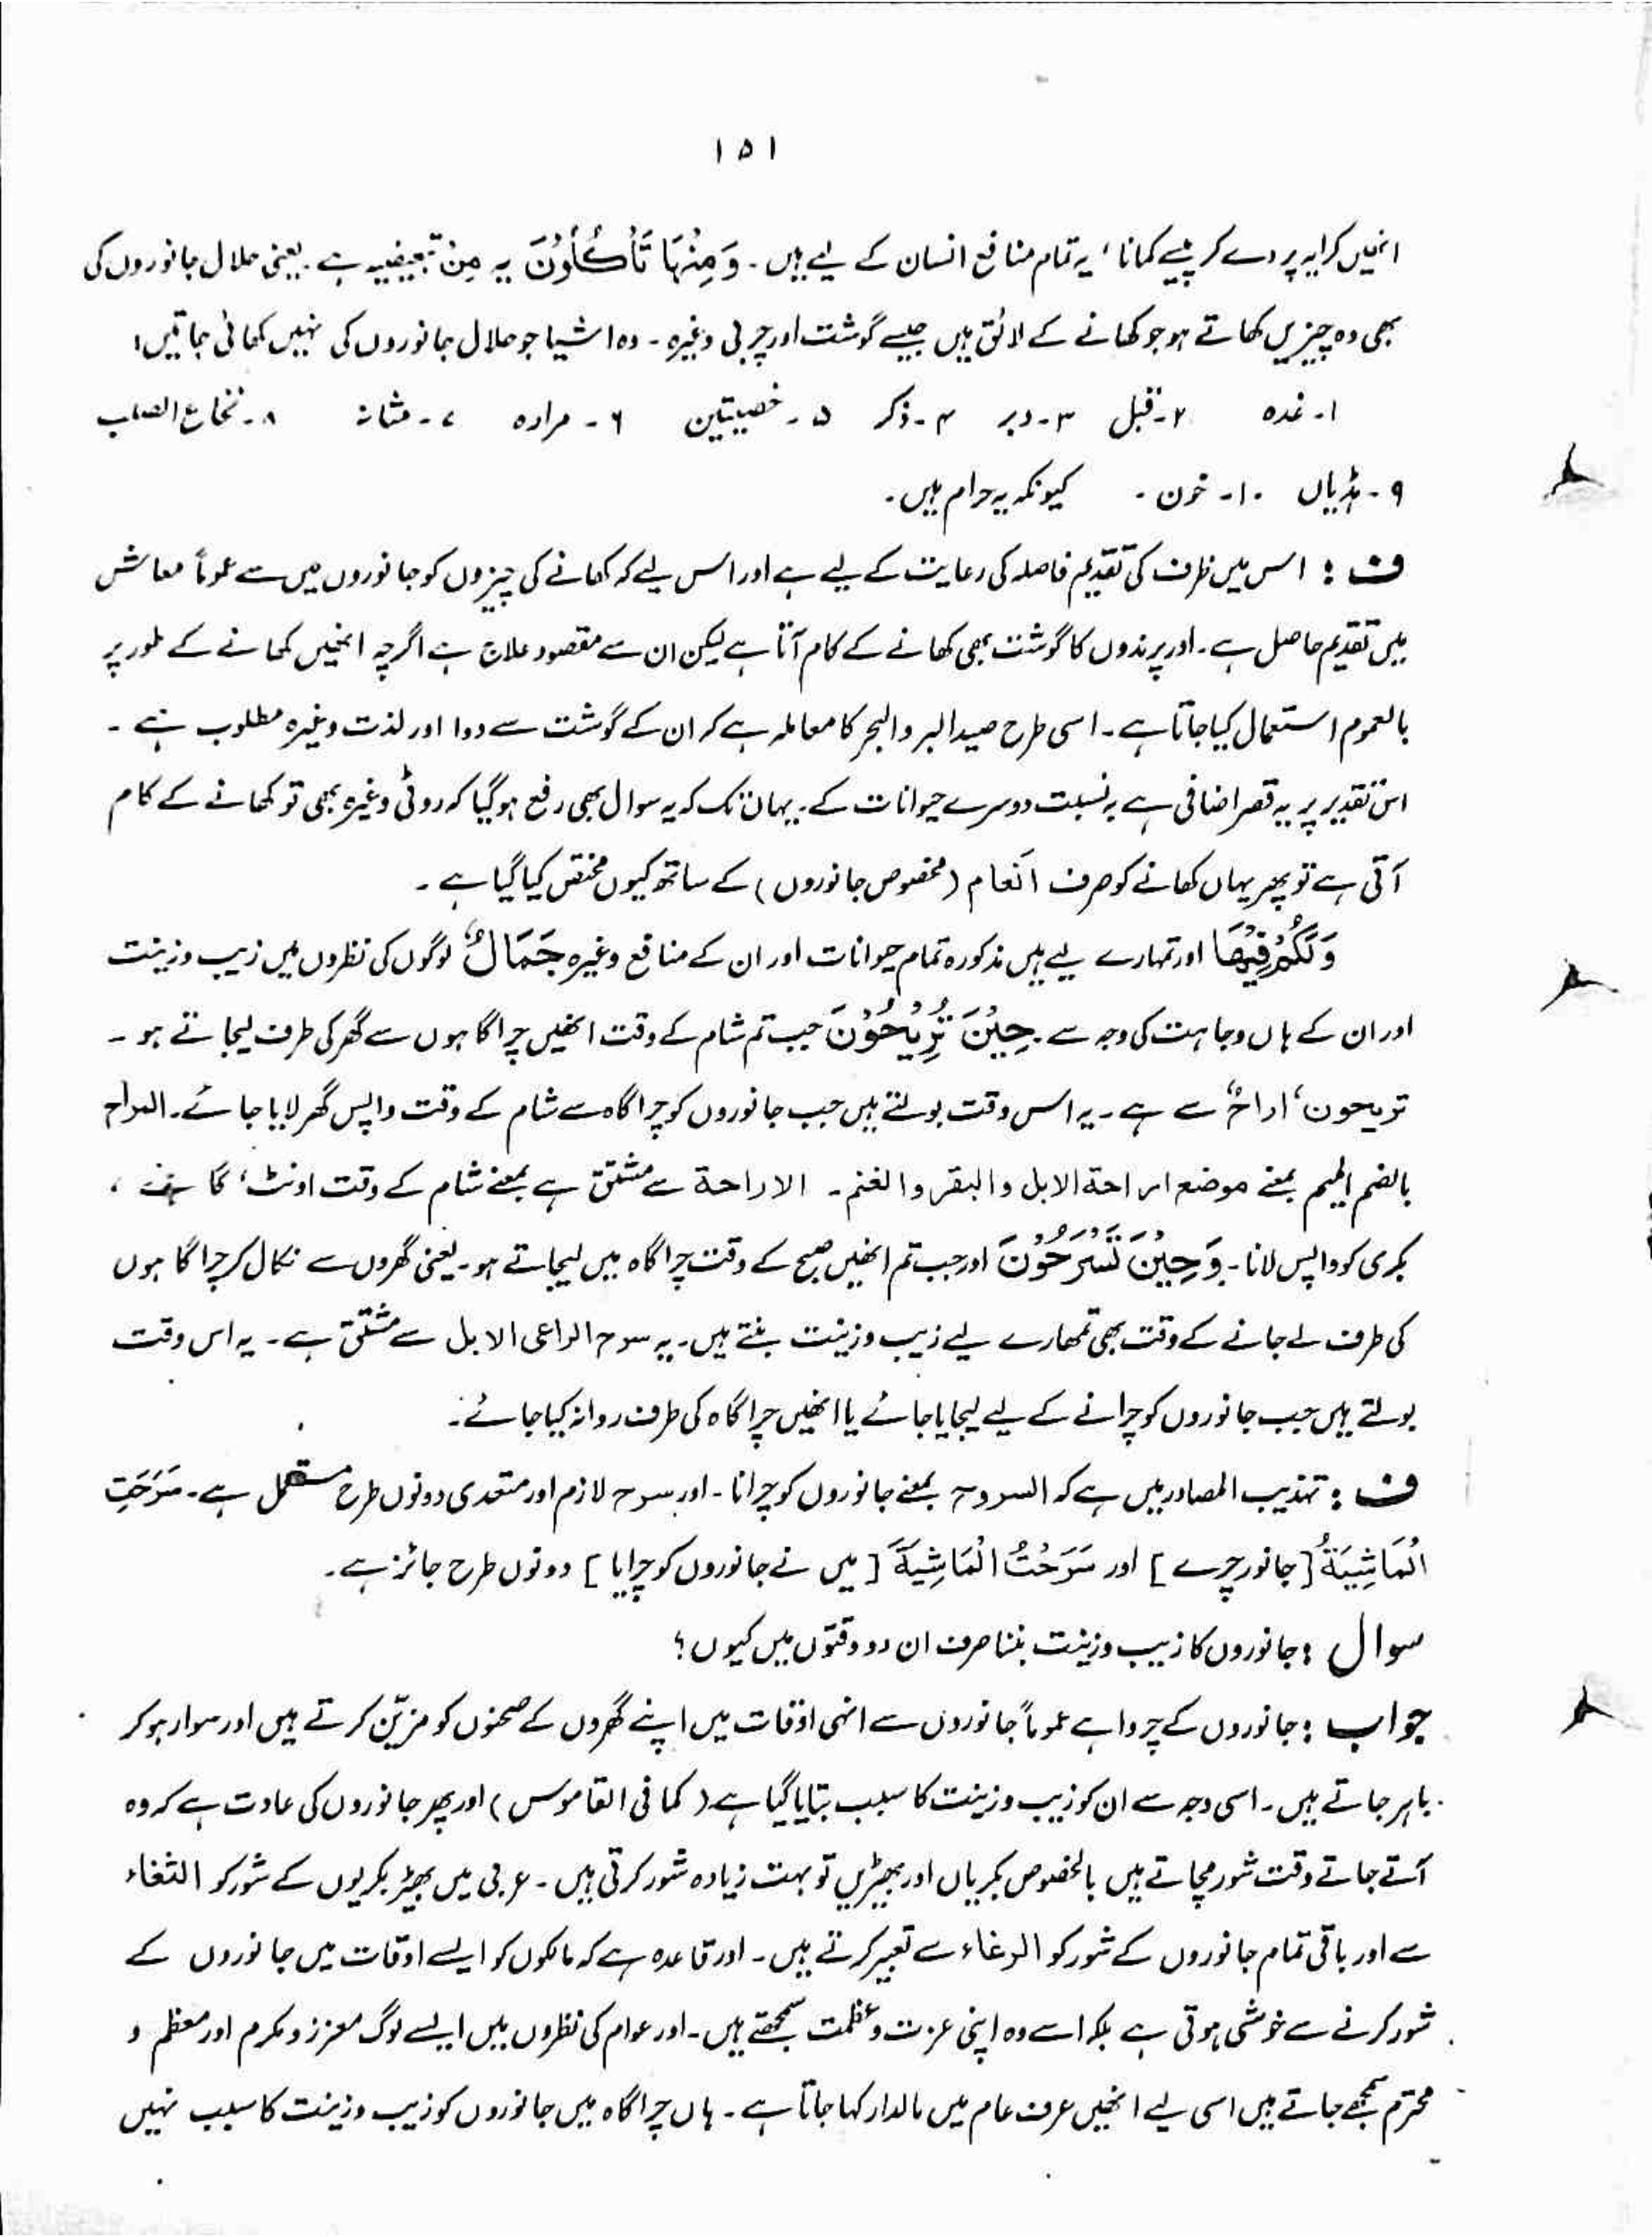 ۱۵۱
انہیں کرایہ پر دے کر پیسے کمانا، یہ تمام منافع انسان کے لیے ہیں۔ وَمِنْهَا تَأْكُلُوْنَ یہ مِنْ تبعیضیہ ہے۔ یعنی حلال جانوروں کی
بھی وہ چیزیں کھاتے ہو جو کھانے کے لائق ہیں جیسے گوشت اور چربی وغیرہ۔ وہ اشیا جو حلال جانوروں کی نہیں کھائی جاتیں:
۱۔ غدہ ۲۔ قبل ۳۔ دبر ۴۔ ذکر ۵۔ خصیتین ۶۔ مرارہ ۷۔ مثانہ ۸۔ نخاع الصلب
۹۔ ہڈیاں ۱۰۔ خون۔ کیونکہ یہ حرام ہیں۔
ف : اس میں ظرف کی تقدیم فاصلہ کی رعایت کے لیے ہے اور اس لیے کہ کھانے کی چیزوں کو جانوروں میں سے عموماً معاش
میں تقدیم حاصل ہے۔ اور پرندوں کا گوشت بھی کھانے کے کام آتا ہے لیکن ان سے مقصود علاج ہے اگرچہ انھیں کھانے کے طور پر
بالعموم استعمال کیا جاتا ہے۔ اسی طرح صید البر والبحر کا معاملہ ہے کہ ان کے گوشت سے دوا اور لذت وغیرہ مطلوب ہے۔
اس تقدیر پر یہ قصر اضافی ہے بہ نسبت دوسرے حیوانات کے۔ یہاں تک کہ یہ سوال بھی رفع ہو گیا کہ روٹی وغیرہ بھی تو کھانے کے کام
آتی ہے تو پھر یہاں کھانے کو صرف اَنعام (مخصوص جانوروں) کے ساتھ کیوں مختص کیا گیا ہے۔
وَلَكُمْ فِيْهَا اور تمہارے لیے ہیں مذکورہ تمام حیوانات اور ان کے منافع وغیرہ جَمَالٌ لوگوں کی نظروں میں زیب و زینت
اور ان کے ہاں وجاہت کی وجہ سے۔ حِيْنَ تُرِيْحُوْنَ جب تم شام کے وقت انھیں چراگاہوں سے گھر کی طرف لیجاتے ہو۔
تریحون، اراحٌ سے ہے۔ یہ اس وقت بولتے ہیں جب جانوروں کو چراگاہ سے شام کے وقت واپس گھر لایا جائے۔ المراح
بالضم المیم بمعنے موضع اراحة الابل والبقر والغنم۔ الاراحة سے مشتق ہے بمعنے شام کے وقت اونٹ، گائے،
بکری کو واپس لانا۔ وَحِيْنَ تَسْرَحُوْنَ اور جب تم انھیں صبح کے وقت چراگاہ میں لیجاتے ہو۔ یعنی گھروں سے نکال کر چراگاہوں
کی طرف لے جانے کے وقت بھی تمھارے لیے زیب و زینت بنتے ہیں۔ یہ سرح الراعی الابل سے مشتق ہے۔ یہ اس وقت
بولتے ہیں جب جانوروں کو چرانے کے لیے لیجایا جائے یا انھیں چراگاہ کی طرف روانہ کیا جائے۔
ف : تہذیب المصادر میں ہے کہ السروح بمعنے جانوروں کو چرانا۔ اور سرح لازم اور متعدی دونوں طرح مستعمل ہے۔ سَرَحَتِ
الْمَاشِيَةُ [جانور چرے] اور سَرَحْتُ الْمَاشِيَةَ [میں نے جانوروں کو چرایا] دونوں طرح جائز ہے۔
سوال : جانوروں کا زیب و زینت بننا صرف ان دو وقتوں میں کیوں؟
جواب : جانوروں کے چرواہے عموماً جانوروں سے انہی اوقات میں اپنے گھروں کے صحنوں کو مزیّن کرتے ہیں اور سوار ہو کر
باہر جاتے ہیں۔ اسی وجہ سے ان کو زیب و زینت کا سبب بتایا گیا ہے (کما فی القاموس) اور پھر جانوروں کی عادت ہے کہ وہ
آتے جاتے وقت شور مچاتے ہیں بالخصوص بکریاں اور بھیڑیں تو بہت زیادہ شور کرتی ہیں۔ عربی میں بھیڑ بکریوں کے شور کو الثغاء
سے اور باقی تمام جانوروں کے شور کو الرغاء سے تعبیر کرتے ہیں۔ اور قاعدہ ہے کہ مالکوں کو ایسے اوقات میں جانوروں کے
شور کرنے سے خوشی ہوتی ہے بلکہ اسے وہ اپنی عزت و عظمت سمجھتے ہیں۔ اور عوام کی نظروں میں ایسے لوگ معزز و مکرم اور معظم و
محترم سمجھے جاتے ہیں اسی لیے انھیں عرف عام میں مالدار کہا جاتا ہے۔ ہاں چراگاہ میں جانوروں کو زیب و زینت کا سبب نہیں